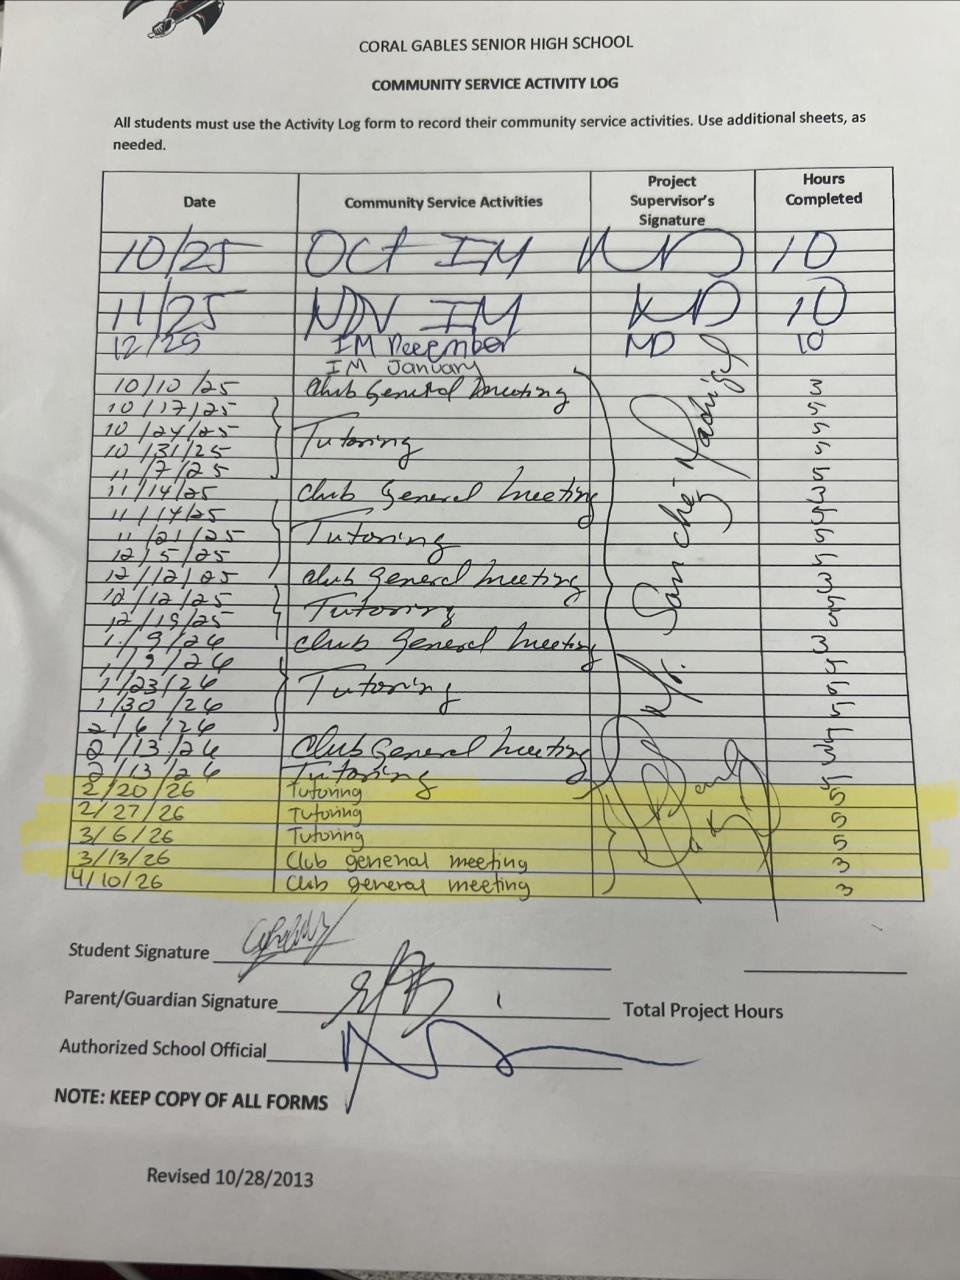 CORAL GABLES SENIOR HIGH SCHOOL
COMMUNITY SERVICE ACTIVITY LOG
All students must use the Activity Log form to record their community service activities. Use additional sheets, as
needed.
Date Community Service Activities Project Supervisor's Signature Hours Completed
10/25 Oct IM ND 10
11/25 NOV IM ND 10
12/25 IM December ND 10
IM January
10/10/25 Club General Meeting 3
10/17/25 5
10/24/25 Tutoring 5
10/31/25 5
11/7/25 5
11/14/25 Club General Meeting 3
11/14/25 5
11/21/25 Tutoring 5
12/5/25 5
12/12/25 Club General Meeting 3
12/12/25 Tutoring
12/19/25
1/9/26 Club General Meeting 3
1/9/26 5
1/23/26 Tutoring 5
1/30/26 5
2/6/26 5
2/13/26 Club General Meeting 3
2/13/26 Tutoring 5
2/20/26 Tutoring 5
2/27/26 Tutoring 5
3/6/26 Tutoring 5
3/13/26 Club general meeting 3
4/10/26 Club general meeting 3
Student Signature
Parent/Guardian Signature Total Project Hours
Authorized School Official
NOTE: KEEP COPY OF ALL FORMS
Revised 10/28/2013